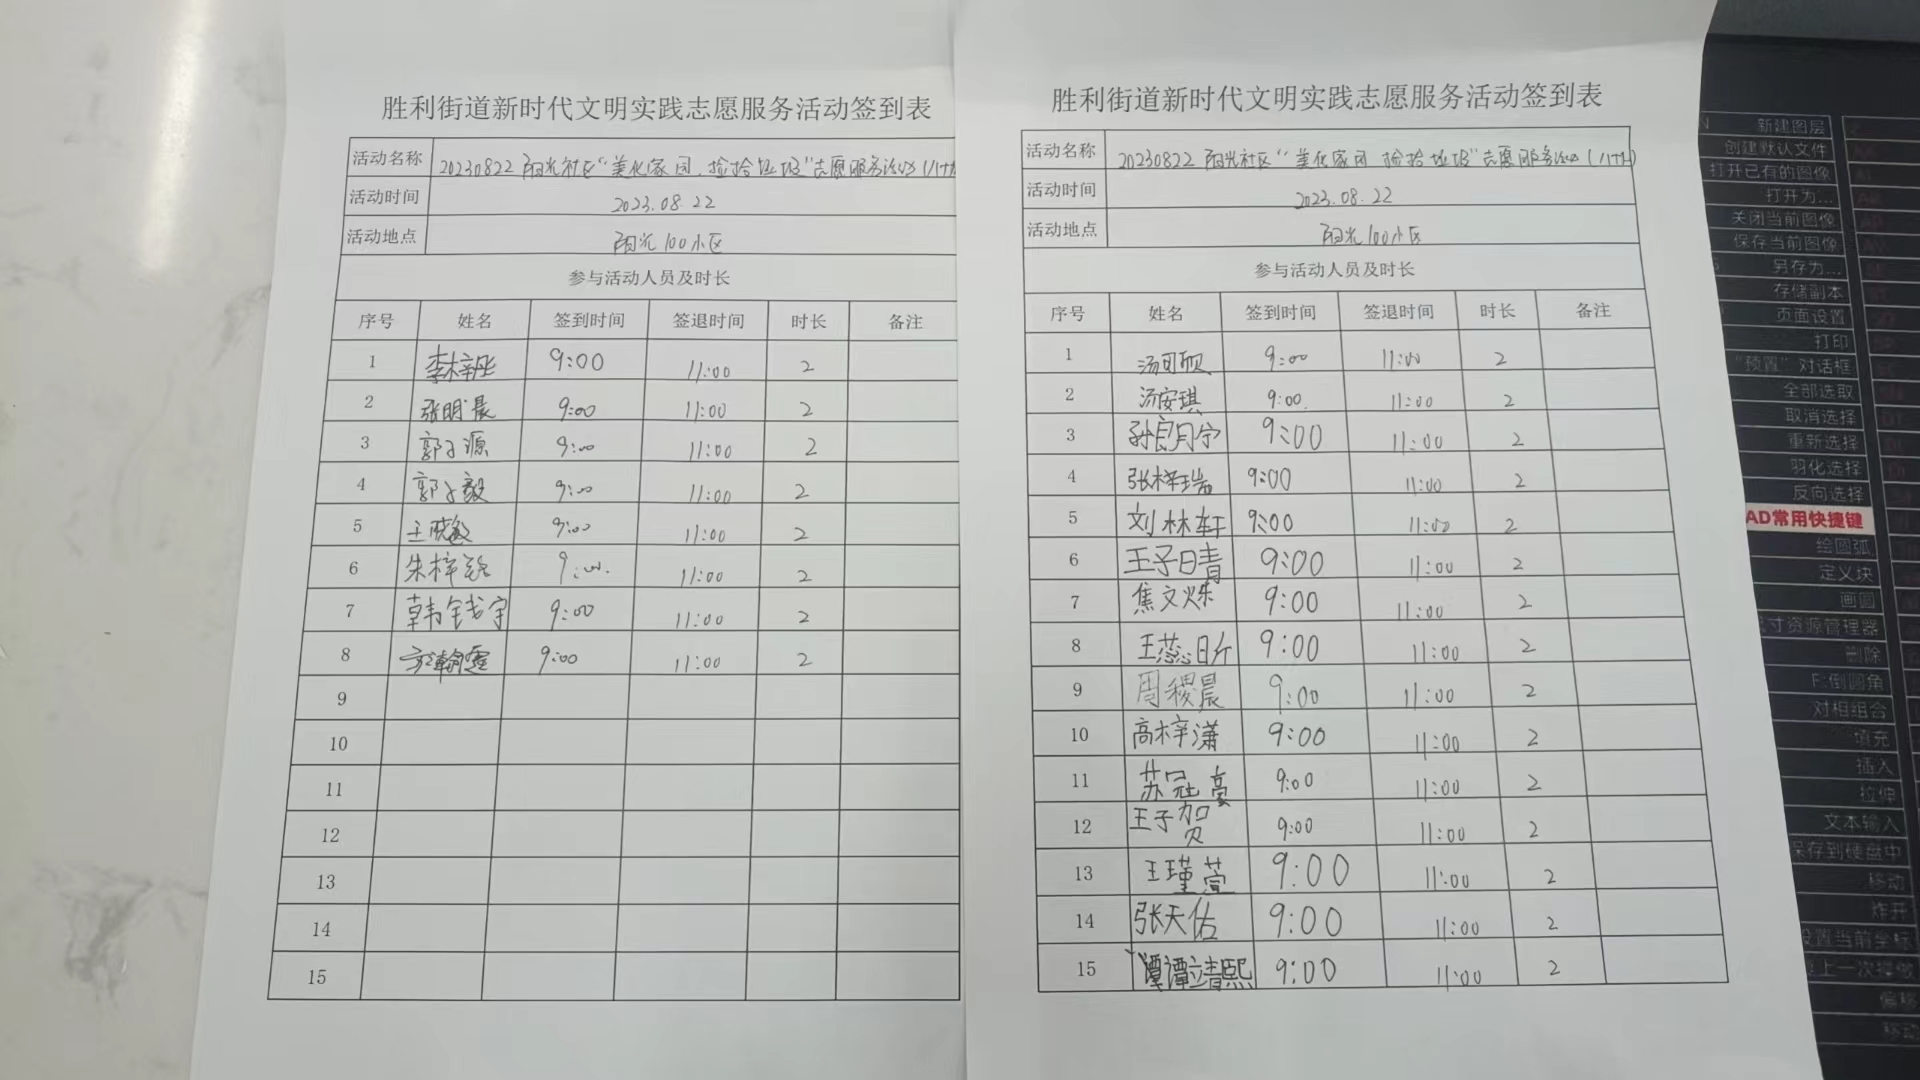 胜利街道新时代文明实践志愿服务活动签到表
活动名称 20230822 阳光社区“美化家园,捡拾垃圾”志愿服务活动
活动时间 2023.08.22
活动地点 阳光100小区
参与活动人员及时长
序号 姓名 签到时间 签退时间 时长 备注
1 9:00 11:00 2
2 张明晨 9:00 11:00 2
3 郭子源 9:00 11:00 2
4 郭子毅 9:00 11:00 2
5 王晓敏 9:00 11:00 2
6 朱梓 9:00 11:00 2
7 9:00 11:00 2
8 9:00 11:00 2
9
10
11
12
13
14
15
胜利街道新时代文明实践志愿服务活动签到表
活动名称 20230822 阳光社区“美化家园 捡拾垃圾”志愿服务活动
活动时间 2023.08.22
活动地点 阳光100小区
参与活动人员及时长
序号 姓名 签到时间 签退时间 时长 备注
1 9:00 11:00 2
2 汤安琪 9:00 11:00 2
3 9:00 11:00 2
4 张梓瑞 9:00 11:00 2
5 刘林轩 9:00 11:00 2
6 王子晴 9:00 11:00 2
7 焦文烁 9:00 11:00 2
8 王蕊昕 9:00 11:00 2
9 周稷晨 9:00 11:00 2
10 高梓潇 9:00 11:00 2
11 苏冠豪 9:00 11:00 2
12 王子贺 9:00 11:00 2
13 王瑾萱 9:00 11:00 2
14 张天佑 9:00 11:00 2
15 谭靖熙 9:00 11:00 2
新建图层
创建默认文件
打开已有的图像
打开为...
关闭当前图像
保存当前图像
另存为...
存储副本
页面设置
打印
“预置”对话框
全部选取
取消选择
重新选择
羽化选择
反向选择
AD常用快捷键
绘圆弧
定义块
画圆
寸资源管理器
删除
F:倒圆角
对相组合
填充
插入
拉伸
文本输入
保存到硬盘中
移动
炸开
设置当前坐标
上一次操做
偏移
移动